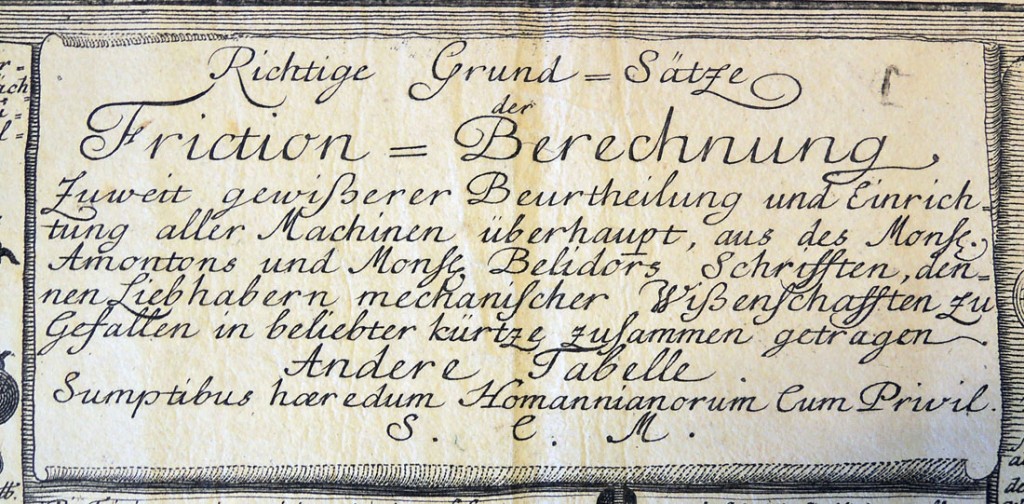 Richtige Grund = Sätze
der
Friction = Berechnung,
Zuweit gewißerer Beurtheilung und Einrich=
tung aller Machinen überhaupt, aus des Mons.
Amontons und Mons. Belidors Schrifften, den=
nen Liebhabern mechanischer Wißenschafften zu
Gefallen in beliebter kürtze zusammen getragen.
Andere Tabelle.
Sumptibus hæredum Homannianorum Cum Privil.
S. C. M.